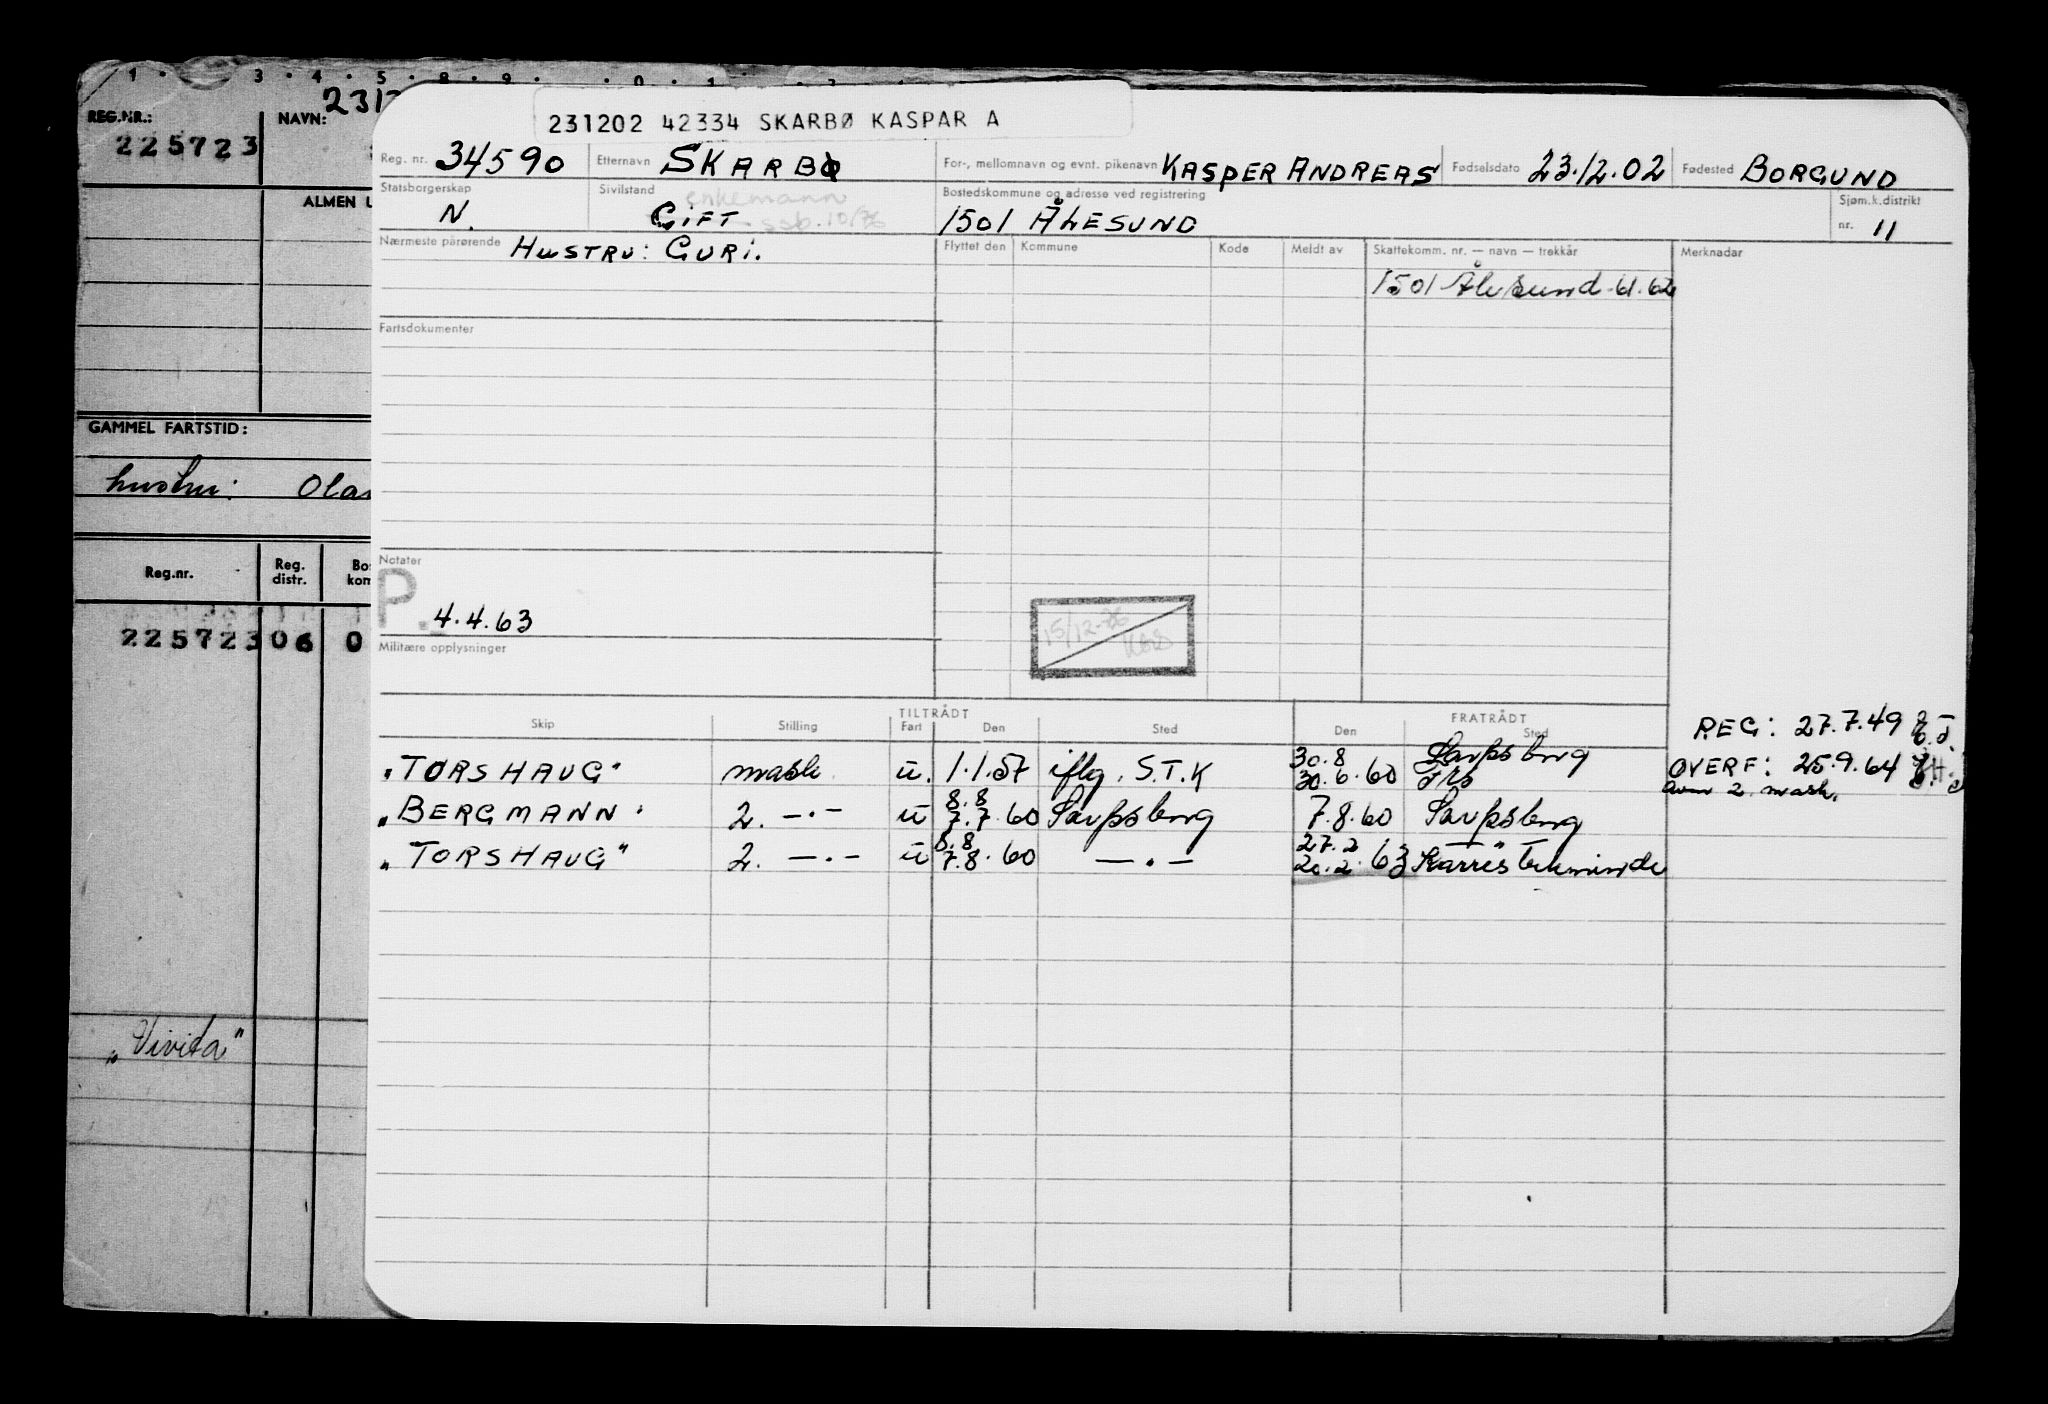 1 · 3 · 4 · 5 · 8 · 9 · 0 · 1
REG.NR.: NAVN: 231
225723
ALMEN
GAMMEL FARTSTID:
hustru: Ola
Reg.nr. Reg. distr. Bo kom
225723 06 0
„Vivita"
231202 42334 SKARBØ KASPAR A
Reg. nr. 34590 Etternavn SKARBØ For-, mellomnavn og evnt. pikenavn KASPER ANDREAS Fødselsdato 23.12.02 Fødested BORGUND
Statsborgerskap N. Sivilstand GIFT enkemann ssb. 10/76 Bostedskommune og adresse ved registrering 1501 ÅLESUND Sjøm.k.distrikt nr. 11
Nærmeste pårørende HUSTRU: GURI. Flyttet den Kommune Kode Meldt av Skattekomm. nr. — navn — trekkår Merknader
1501 Ålesund 61.62
Fartsdokumenter
Notater
P. 4.4.63
15/12-76
Militære opplysninger
TILTRÅDT FRATRÅDT
Skip Stilling Fart Den Sted Den Sted
REG: 27.7.49
„TORSHAUG" mask. u. 1.1.57 iflg. S.T.K 30.8 30.6.60 Sarpsborg
OVERF: 25.9.64
2 mask.
„BERGMANN" 2. —·— u 8.8 7.7.60 Sarpsborg 7.8.60 Sarpsborg
„TORSHAUG" 2. —·— u 8.8 7.8.60 —·— 27.2 20.2.63 Karrebeksminde